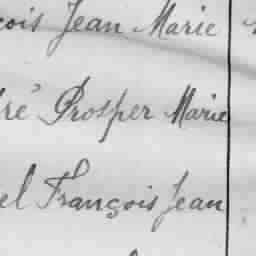 çois Jean Marie
ré Prosper Marie
el François Jean